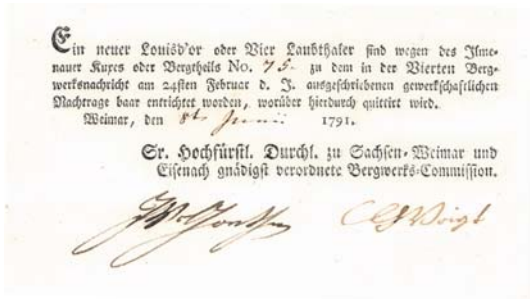 Ein neuer Louisd'or oder Vier Laubthaler sind wegen des Ilme-
nauer Kuxes oder Bergtheils No. 75. zu dem in der Vierten Berg-
werksnachricht am 24sten Februar d. J. ausgeschriebenen gewerkschaftlichen
Nachtrage baar entrichtet worden, worüber hierdurch quittirt wird.
Weimar, den 8t Junii 1791.
Sr. Hochfürstl. Durchl. zu Sachsen-Weimar und
Eisenach gnädigst verordnete Bergwerks-Commission.
JWvGoethe CGVoigt